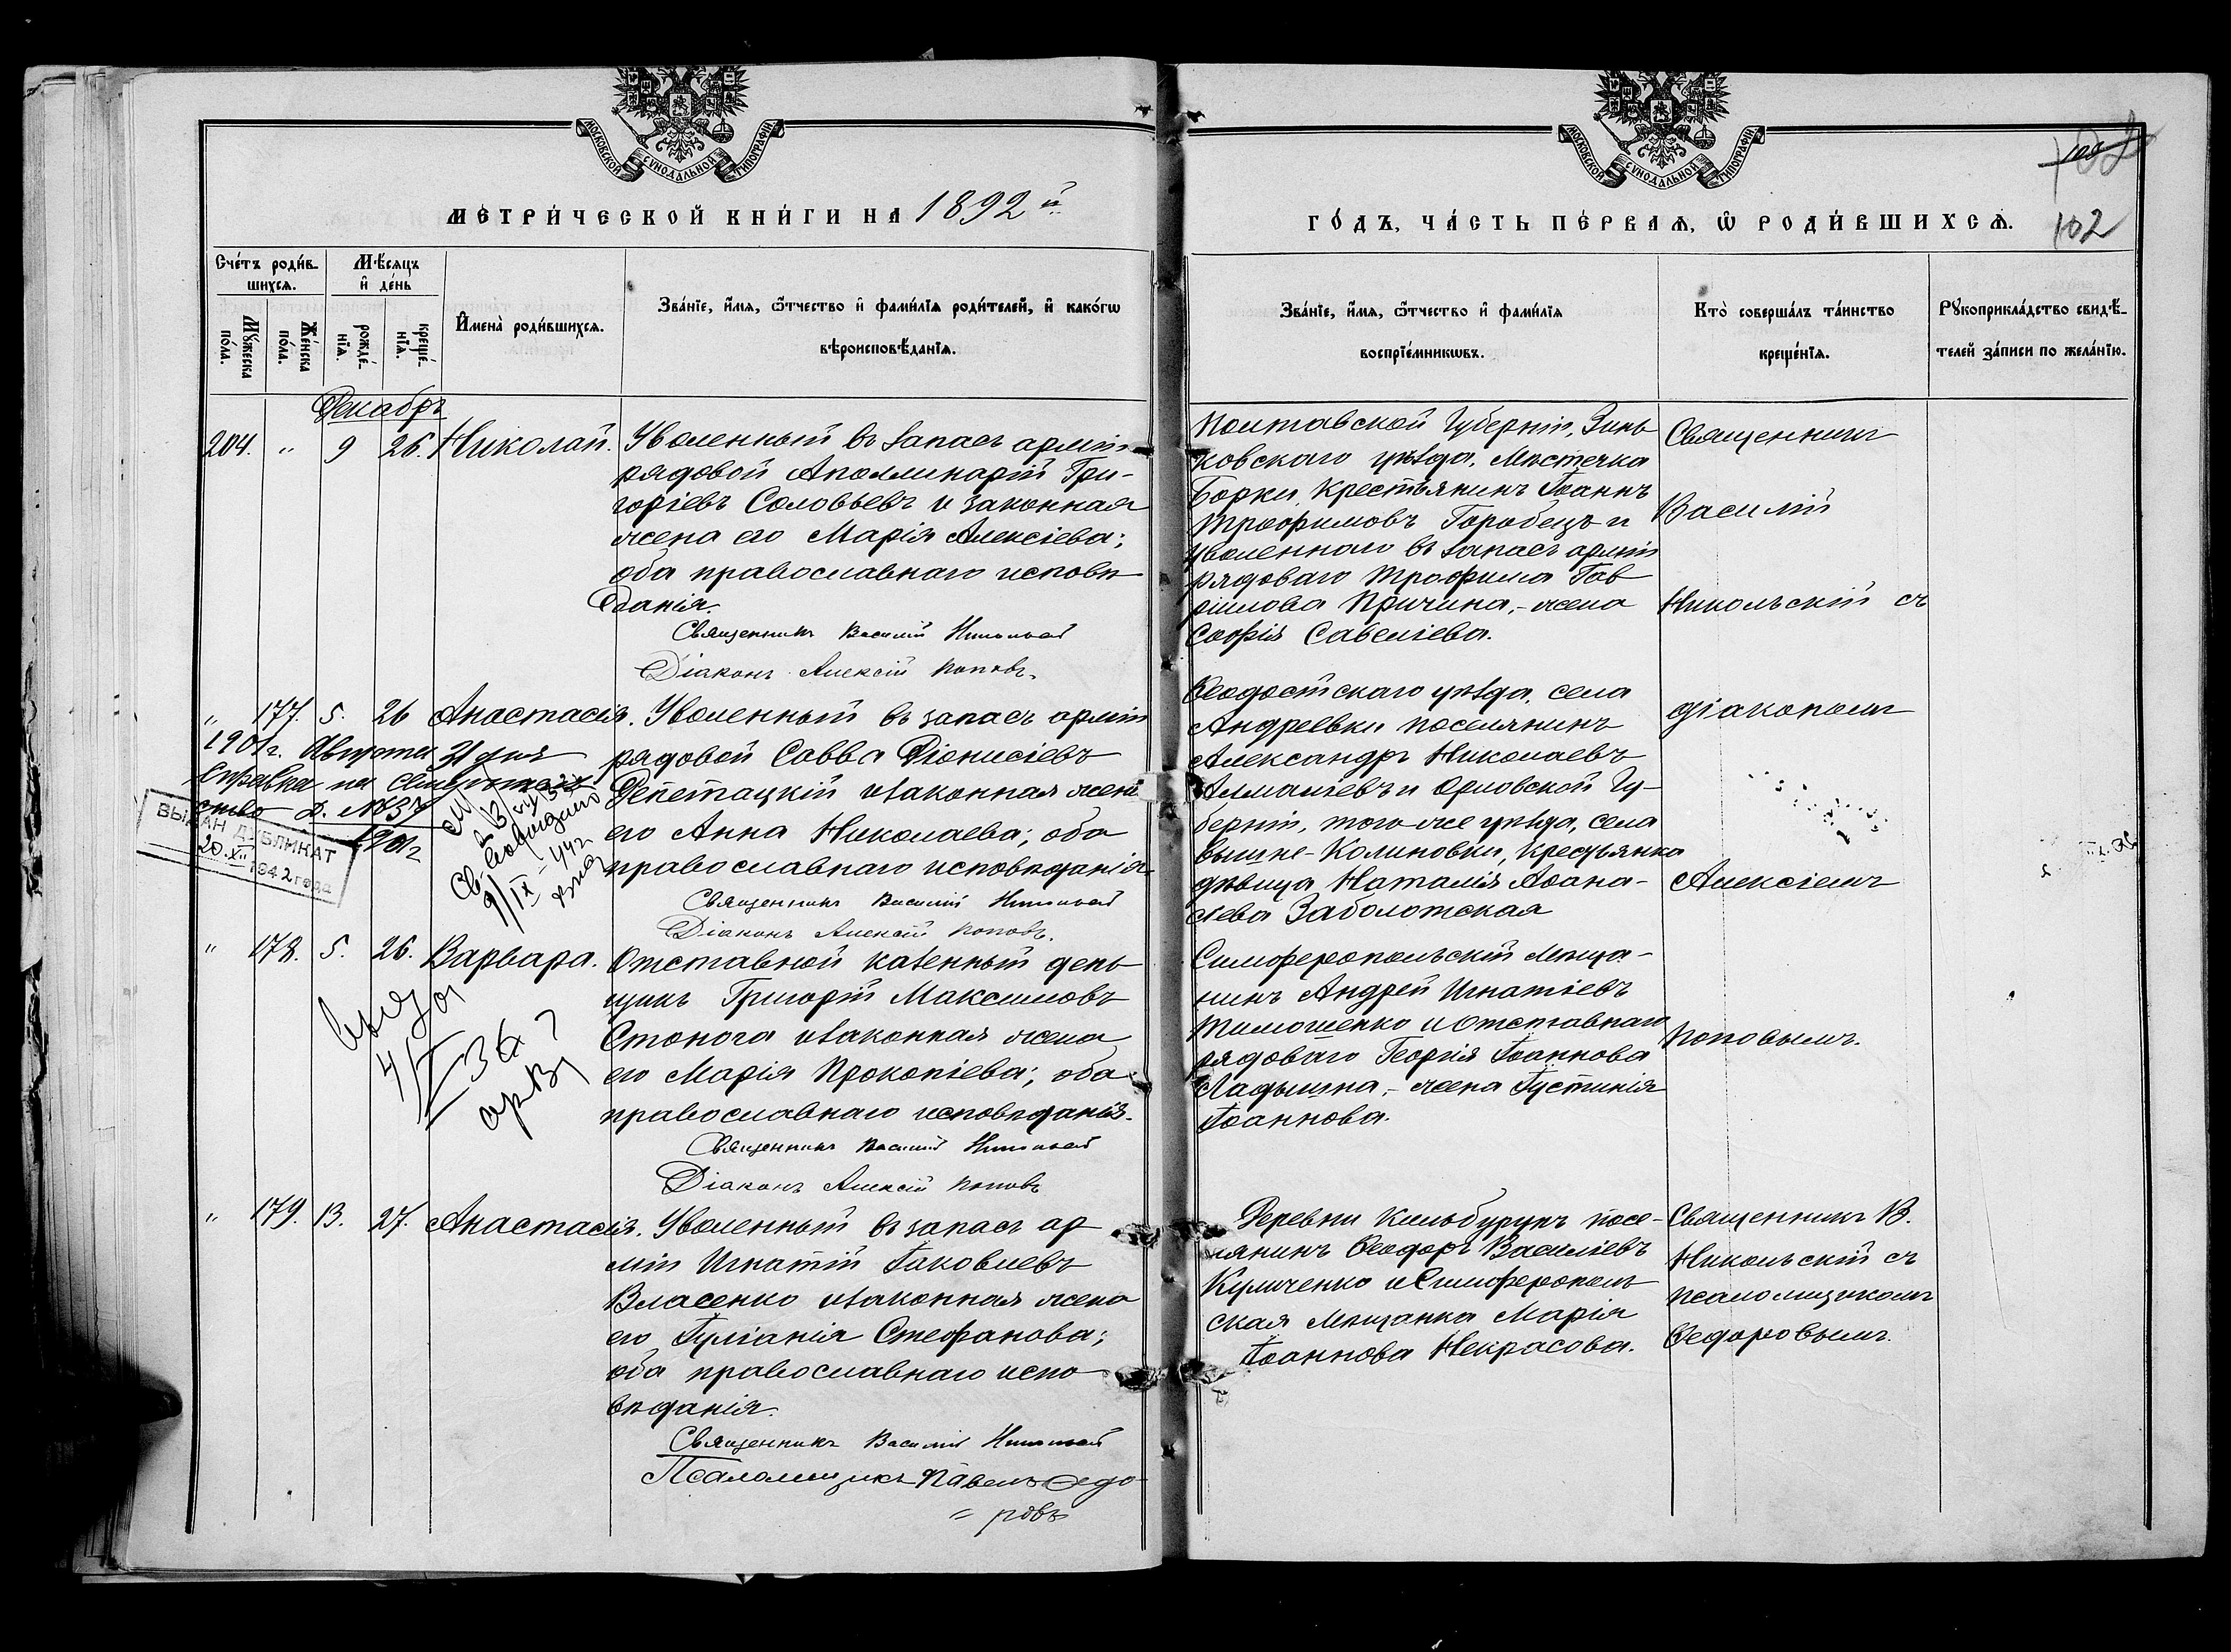 МОСКОВСКОЙ СѴНОДАЛЬНОЙ ТИПОГРАФІИ
МЕТРИ́ЧЕСКОЙ КНИ́ГИ НА 1892 й
Сче́тъ роди́в-
шихсѧ.
Мѣ́сѧцъ
и҆ де́нь
Мꙋ́жеска
по́ла.
Же́нска
по́ла.
рожде́-
нїѧ.
креще́-
нїѧ.
И҆мена̀ роди́вшихсѧ.
Зва́нїе, и҆́мѧ, ѻ҆́тчество и҆ фами́лїѧ роди́телей, и҆ како́гѡ
вѣроисповѣ́данїѧ.
Декабрь
204. " 9 26. Николай. Уволенный въ запасъ арміи
рядовой Аполлинарій Гри-
горіевъ Соловьевъ и законная
жена его Марія Алексіева;
оба православнаго исповѣ
данія.
Священникъ Василій Никольскій
Діаконъ Алексій Поповъ.
" 177. 5. 26 Анастасія. Уволенный въ запасъ арміи
рядовой Савва Діонисіевъ
Депетацкій и законная жена
его Анна Николаева; оба
православнаго исповѣданія
Священникъ Василій Никольскій
Діаконъ Алексій Поповъ.
1901г. Августа 31 дня
Справка на
ство Д. №37
1901г
ВЫДАН ДУБЛИКАТ
20.XII 1942 года
9/IX-442
" 178. 5. 26. Варвара. Отставной казенный день
щикъ Григорій Максимовъ
Стонога и законная жена
его Марія Прокопіева; оба
православнаго исповѣданія.
Священникъ Василій Никольскій
Діаконъ Алексій Поповъ
" 179. 13. 27. Анастасія. Уволенный въ запасъ ар
міи Игнатій Іаковлевъ
Власенко и законная жена
его Іуліанія Стефанова;
оба православнаго испо
вѣданія.
Священникъ Василій Никольскій
Псаломщикъ Павелъ Ѳедо-
= ровъ
МОСКОВСКОЙ СѴНОДАЛЬНОЙ ТИПОГРАФІИ
ГО́ДЪ, ЧА́СТЬ ПЕ́РВАѦ, Ѡ҆ РОДИ́ВШИХСѦ.
102
Зва́нїе, и҆́мѧ, ѻ҆́тчество и҆ фами́лїѧ
воспрїе́мникѡвъ.
Кто̀ соверша́лъ та́инство
креще́нїѧ.
Рꙋкоприкла́дство свидѣ́-
телей за́писи по жела́нїю.
Полтавской Губерніи, Зинь
ковскаго уѣзда, Мѣстечка
Борки, Крестьянинъ Іоаннъ
Трофимовъ Горобецъ и
уволеннаго въ запасъ арміи
рядоваго Трофима Гав
ріилова Причина,- жена
Софія Савеліева.
Священникъ
Василій
Никольскій съ
Ѳеодосійскаго уѣзда, села
Андреевки поселянинъ
Александръ Николаевъ
Алмаліевъ и Орловской Гу-
берніи, того же уѣзда, села
Вышне-Калиновки, крестьянка
дѣвица Наталія Аѳана-
сіева Заболотская
діакономъ
Алексіемъ
Симферопольскій Мѣща-
нинъ Андрей Игнатіевъ
Тимошенко и отставнаго
рядоваго Георгія Іоаннова
Ладыгина,- жена Іустинія
Іоаннова.
Поповымъ.
Деревни Кильбурунъ посе-
лянинъ Ѳеодоръ Василіевъ
Куличенко и Симферополь
ская Мѣщанка Марія
Іоаннова Некрасова.
Священникъ В.
Никольскій съ
псаломщикомъ
Ѳедоровымъ.